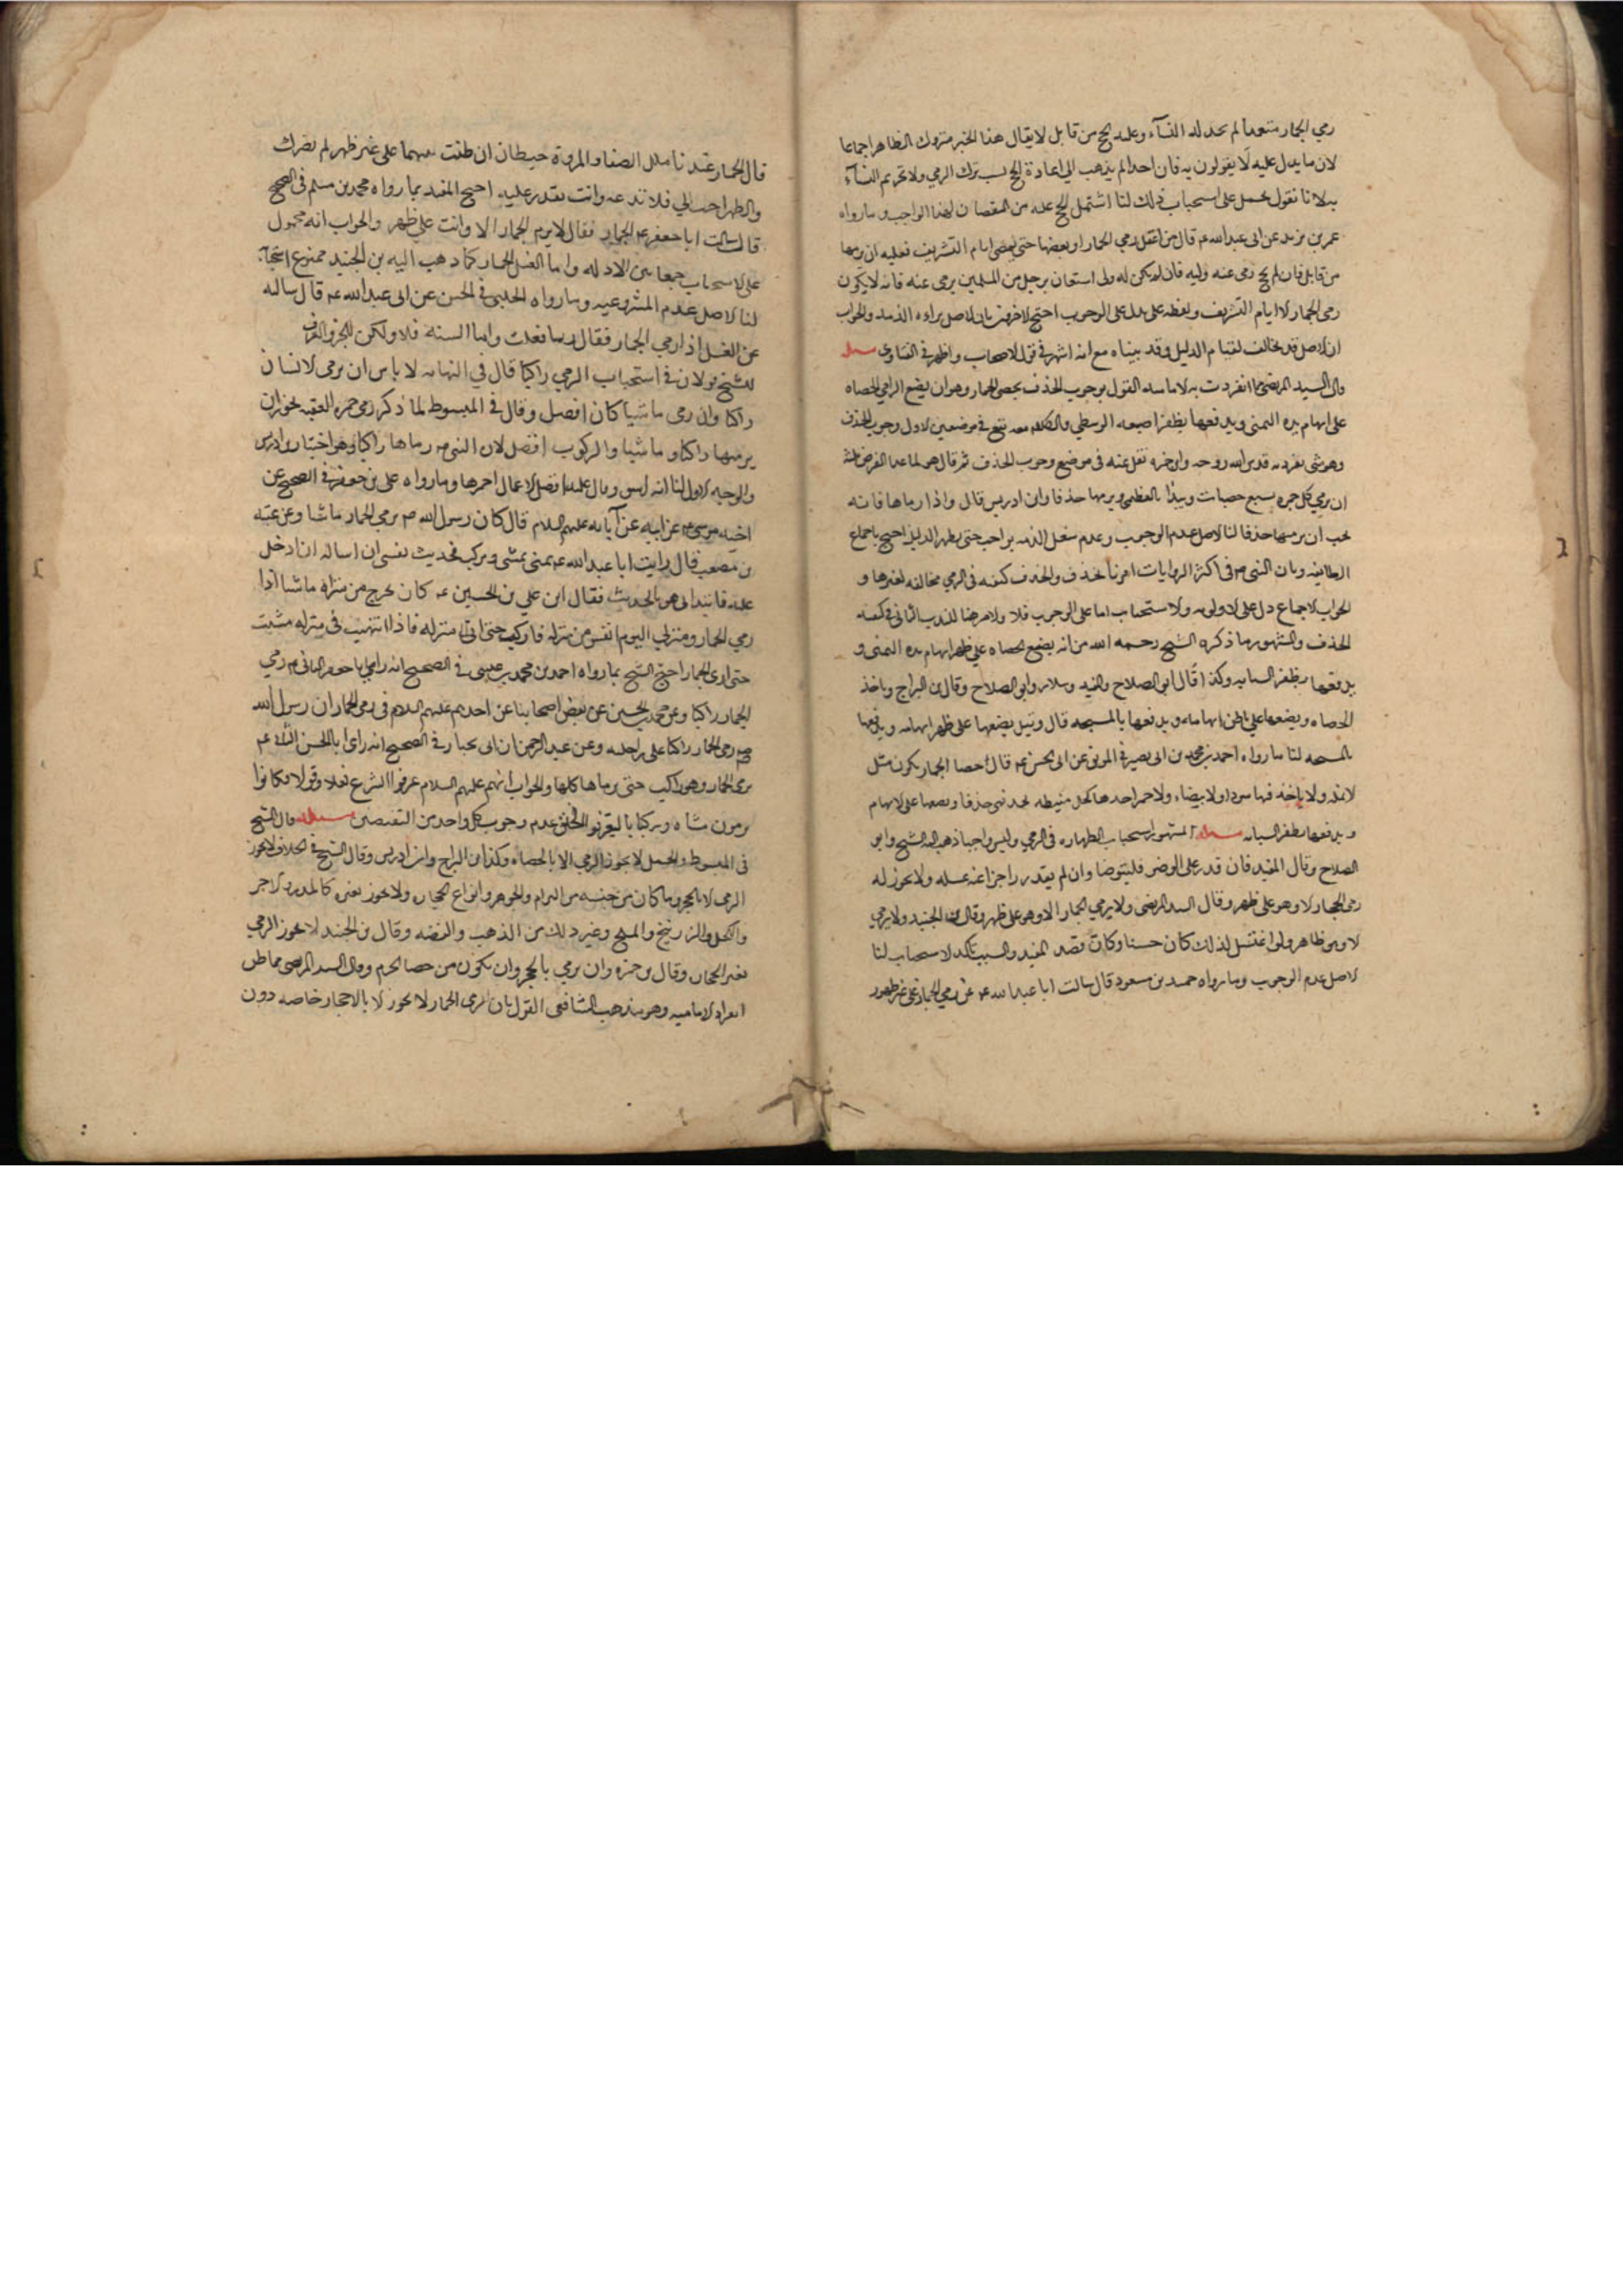 رمي الجمار متعمدا لم تحل له النسآء وعليه الحج من قابل لا يقال هذا الخبر متروك الظاهر اجماعا
لان ما يدل عليه لا يقولون به فان احدا لم يذهب الى اعادة الحج بسبب ترك الرمي ولا تحريم النسآء
به لانا نقول يحمل على استحباب ذلك لنا اشتمل الحج عليه من النقصان لهذا الواجب وما رواه
عمر بن يزيد عن ابى عبد الله ع قال من اغفل رمي الجمار او بعضها حتى يمضى ايام التشريف فعليه ان يرميها
من قابل فان لم يحج رمى عنه وليه فان لم يكن له ولى استعان برجل من المسلمين يرمى عنه فانه لا يكون
رمى الجمار الا ايام التشريف ولفظه على يدل على الوجوب احتج الاخرون بان الاصل براءه الذمه والجواب
ان الاصل قد يخالف لقيام الدليل وقد بيناه مع انه اشهر فى قول الاصحاب واظهر فى الفتاوى مسله
قال السيد المرتضى مما انفردت به الاماميه القول بوجوب الخذف بحصى الجمار وهو ان يضع الرامي الحصاه
على ابهام يده اليمنى ويدفعها بظفر اصبعه الوسطي والكلام معه يقع فى موضعين الاول وجوب الخذف
وهو شى تفرد به قدس الله روحه وابن حمزه نقل عنه فى موضع وجوب الخذف ثم قال هو لما عدا الفرض
ان يرمي كل جمره بسبع حصيات ويبدأ بالعظمى ويرميها خذفا وابن ادريس قال واذا رماها فانه
يجب ان يرميها خذفا لنا الاصل عدم الوجوب وعدم شغل الذمه بواجب حتى يظهر الدليل احتج باجماع
الطائفه وبان النبى ص فى اكثر الروايات امرنا بالخذف والخذف كيفيه فى الرمي مخالفه لغيرها و
الجواب الاجماع دل على الاولويه والاستحباب اما على الوجوب فلا والامر هنا للندب الثانى فى كيفيه
الخذف والمشهور ما ذكره الشيخ رحمه الله من انه يضع الحصاه على ظهر ابهام يده اليمنى و
يدفعها بظفر السبابه وكذا قال ابو الصلاح والمفيد وسلار وابو الصلاح وقال بن البراج وياخذ
الحصاه ويضعها على باطن ابهامه ويدفعها بالمسبحه قال وقيل يضعها على ظهر ابهامه ويدفعها
بالمسبحه لنا ما رواه احمد بن محمد بن ابى نصر فى الموثق عن ابى الحسن ع قال حصا الجمار يكون مثل
الانمله ولا ياخذ فيها سودا ولا بيضاء ولا حمرا خدها كحليه منقطه تخذفهن خذفا وتضعها على الابهام
ويدفعها بظفر السبابه مسله المشهور استحباب الطهاره فى الرمي وليس واجبا ذهب اليه الشيخ وابو
الصلاح وقال المفيد فان قدر على الوضوء فليتوضا وان لم يقدر اجزا عنه غسله ولا يجوز له
رمى الجمار الا وهو على طهر وقال السيد المرتضى ولا يرمي الجمار الا وهو على طهر وقال بن الجنيد ولا يرمي
الا وهو طاهر ولو اغتسل لذلك كان حسنا وكان قصد المفيد والسيد تاكد الاستحباب لنا
الاصل عدم الوجوب وما رواه حميد بن مسعود قال سالت ابا عبد الله ع عن رمي الجمار على غير طهور
قال الجمار عندنا مثل الصفا والمروة حيطان ان طفت بينهما على غير طهر لم يضرك
والطهر احب الي فلا تدعه وانت تقدر عليه احتج المفيد بما رواه محمد بن مسلم فى الصحيح
قال سالت ابا جعفر ع الجمار فقال لا يرم الجمار الا وانت على طهر والجواب انه محمول
على الاستحباب جمعا بين الادله واما الغسل للجمار كما ذهب اليه بن الجنيد ممنوع استحبابه
لنا الاصل عدم المشروعيه وما رواه الحلبى فى الحسن عن ابى عبد الله ع قال سالته
عن الغسل اذا رمي الجمار فقال ربما فعلت واما السنه فلا ولكن للحر والعرق
للشيخ قولان فى استحباب الرمي راكبا قال في النهايه لا باس ان يرمى الانسان
راكبا وان رمى ماشيا كان افضل وقال فى المبسوط لما ذكر رمى جمره العقبه يجوز ان
يرميها راكبا وماشيا والركوب افضل لان النبى ص رماها راكبا وهو اختيار بن ادريس
والوجه الاول لنا انه اشق وقال عليه افضل الاعمال احمزها وما رواه على بن جعفر فى الصحيح عن
اخيه موسى عن ابيه عن آبائه عليهم السلام قال كان رسول الله ص يرمي الجمار ماشيا وعن عنبسه
بن مصعب قال رايت ابا عبد الله ع بمنى يمشى ويركب فحدثت نفسى ان اساله اذا دخل
عليه فابتدانى هو بالحديث فقال ان علي بن الحسين ع كان يخرج من منزله ماشيا اذا
رمي الجمار ومنزلي اليوم انفس من منزله فاركب حتى اتى منزله فاذا انتهيت فى منزله مشيت
حتى ارمى الجمار احتج الشيخ بما رواه احمد بن محمد بن عيسى فى الصحيح انه راى ابا جعفر الثانى ع رمي
الجمار راكبا وعن محمد بن الحسين عن بعض اصحابنا عن احدهم عليهم السلام فى رمى الجمار ان رسول الله
ص رمى الجمار راكبا على راحلته وعن عبد الرحمن بن ابى نجران فى الصحيح انه راى ابا الحسن الثالث ع
يرمى الجمار وهو راكب حتى رماها كلها والجواب انهم عليهم السلام عرفوا الشرع فعلا وقولا فكانوا
يرمون مشاه وركبانا ليعرفوا الخلق عدم وجوب كل واحد من النقيضين مسله قال الشيخ
فى المبسوط والجمل لا يجوز الرمي الا بالحصاه وكذا بن البراج وابن ادريس وقال الشيخ فى الخلاف لا يجوز
الرمي الا بالحجر وما كان من جنسه من البرام والجوهر وانواع الحجاره ولا يجوز بغيره كالمدر والاجر
والكحل والزرنيخ والملح وغير ذلك من الذهب والفضه وقال بن الجنيد لا يجوز الرمي
بغير الحجاره وقال بن حمزه وان يرمي بالحجر وان يكون من حصا الحرم وقال السيد المرتضى مما ظن
انفراد الاماميه وهو مذهب الشافعى القول بان رمى الجمار لا يجوز الا بالاحجار خاصه دون